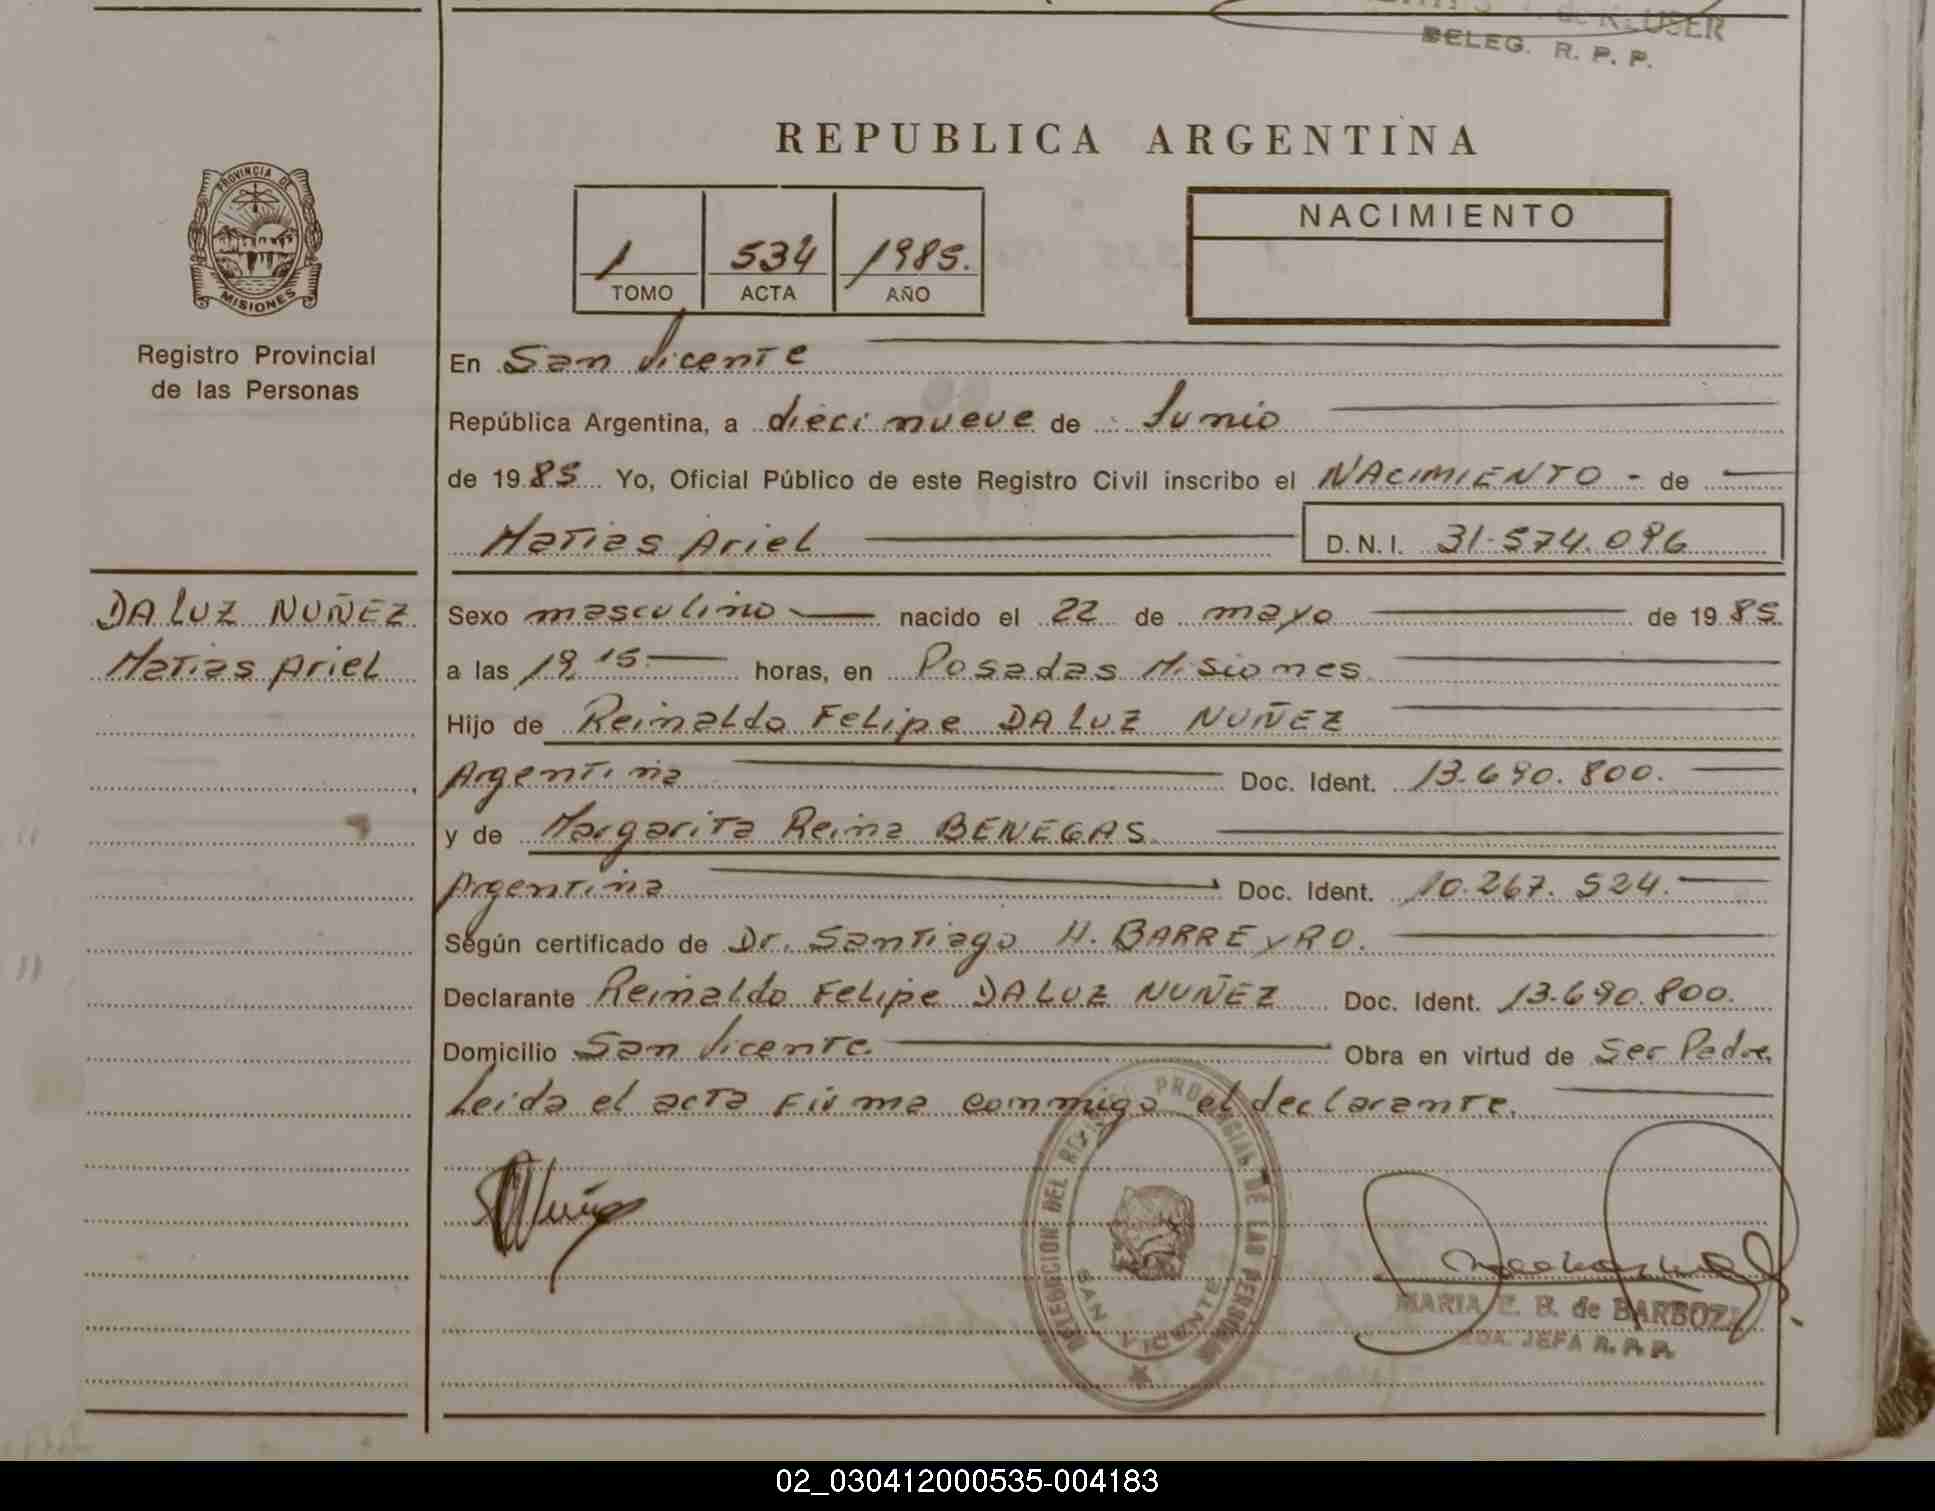 de KLUSER
DELEG. R. P. P.
REPUBLICA ARGENTINA
PROVINCIA DE
MISIONES
Registro Provincial
de las Personas
1 534 1985.
TOMO ACTA AÑO
NACIMIENTO
En San Vicente
República Argentina, a dieci nueve de Junio
de 1985 Yo, Oficial Público de este Registro Civil inscribo el NACIMIENTO - de
Matias Ariel D.N.I. 31.574.096
DA LUZ NUÑEZ
Matias Ariel
Sexo masculino nacido el 22 de mayo de 1985.
a las 19,15 horas, en Posadas Misiones.
Hijo de Reinaldo Felipe DA LUZ NUÑEZ
Argentina Doc. Ident. 13.690.800.
y de Margarita Reina BENEGAS.
Argentina Doc. Ident. 10.267.524.
Según certificado de Dr. Santiago H. BARREYRO.
Declarante Reinaldo Felipe DA LUZ NUÑEZ Doc. Ident. 13.690.800.
Domicilio San Vicente. Obra en virtud de Ser Padre
Leida el acta firma conmigo el declarante.
DELEGACION DEL REGISTRO PROVINCIAL DE LAS PERSONAS
SAN VICENTE
MARIA E. B. de BARBOZA
JEFA R. P. P.
02_030412000535-004183